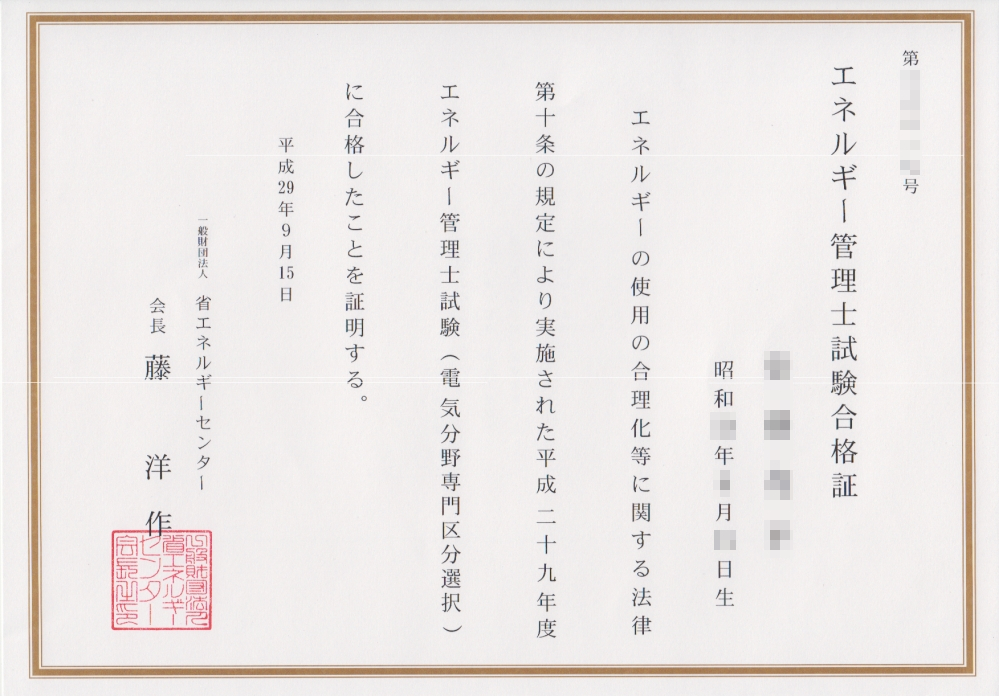 第 号
エネルギー管理士試験合格証
昭和 年 月 日生
エネルギーの使用の合理化等に関する法律
第十条の規定により実施された平成二十九年度
エネルギー管理士試験（電気分野専門区分選択）
に合格したことを証明する。
平成29年9月15日
一般財団法人 省エネルギーセンター
会長 藤 洋 作
省エネルギー
センター
会長之印